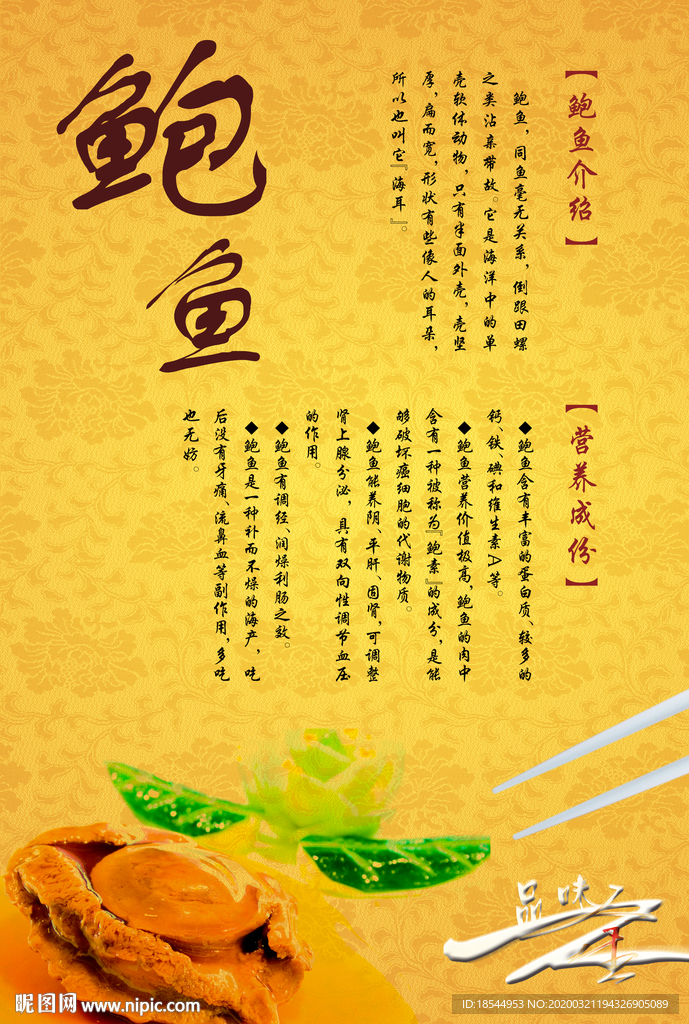 鲍鱼
【鲍鱼介绍】
鲍鱼，同鱼毫无关系，倒跟田螺
之类沾亲带故。它是海洋中的单
壳软体动物，只有半面外壳，壳坚
厚，扁而宽，形状有些像人的耳朵，
所以也叫它『海耳』。
【营养成份】
◆鲍鱼含有丰富的蛋白质、较多的
钙、铁、碘和维生素A等。
◆鲍鱼营养价值极高，鲍鱼的肉中
含有一种被称为『鲍素』的成分，是能
够破坏癌细胞的代谢物质。
◆鲍鱼能养阴、平肝、固肾，可调整
肾上腺分泌，具有双向性调节血压
的作用。
◆鲍鱼有调经、润燥利肠之效。
◆鲍鱼是一种补而不燥的海产，吃
后没有牙痛、流鼻血等副作用，多吃
也无妨。
品味
昵图网 www.nipic.com
ID:18544953 NO:20200321194326905089